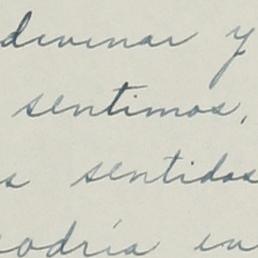 divinar y
sentimos,
s sentidos
odría en